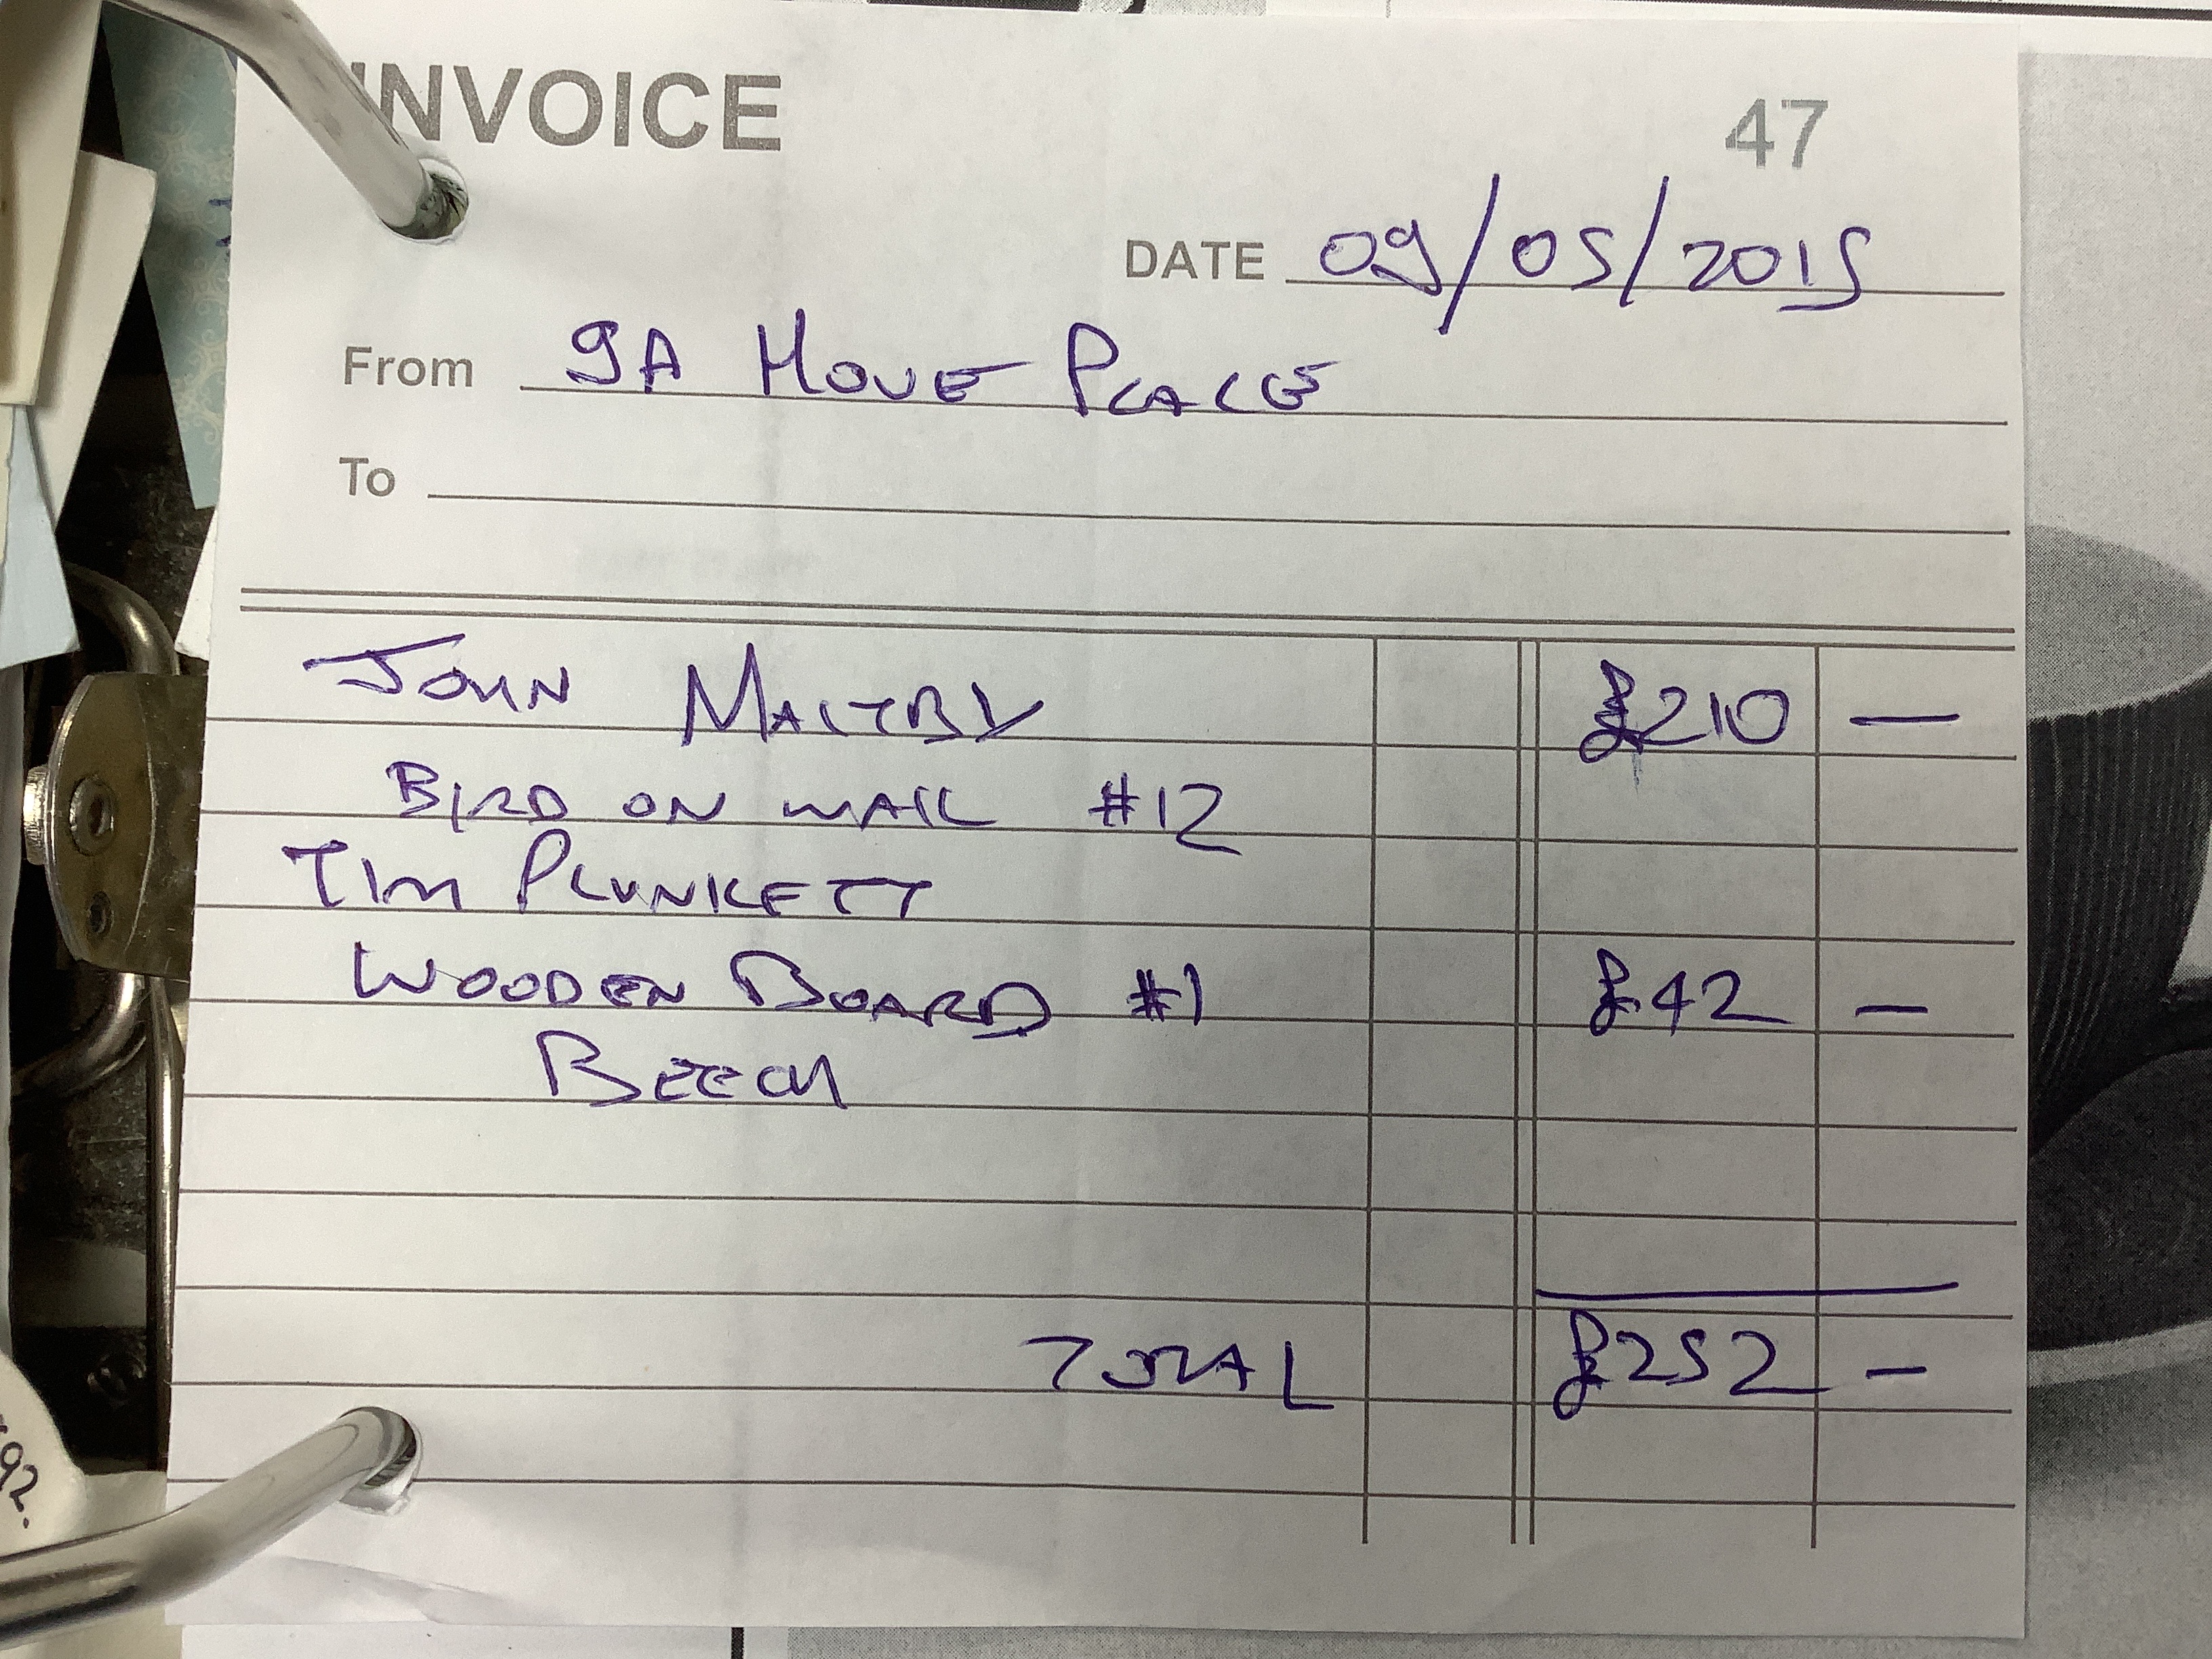 INVOICE
47
DATE 09/05/2015
From 9A HOVE PLACE
To
JOHN MALTBY £210 —
BIRD ON WALL #12
TIM PLUNKETT
WOODEN BOARD #1 £42 —
BEECH
TOTAL £252 —
92.